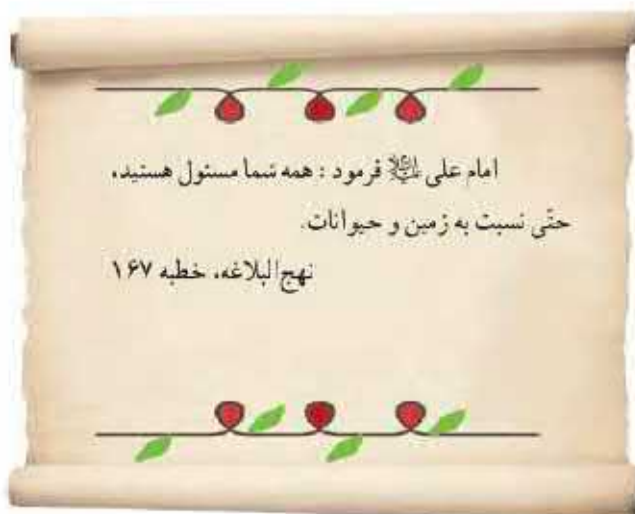 امام علی علیه‌السلام فرمود : همه شما مسئول هستید،
حتّی نسبت به زمین و حیوانات.
نهج‌البلاغه، خطبه ۱۶۷